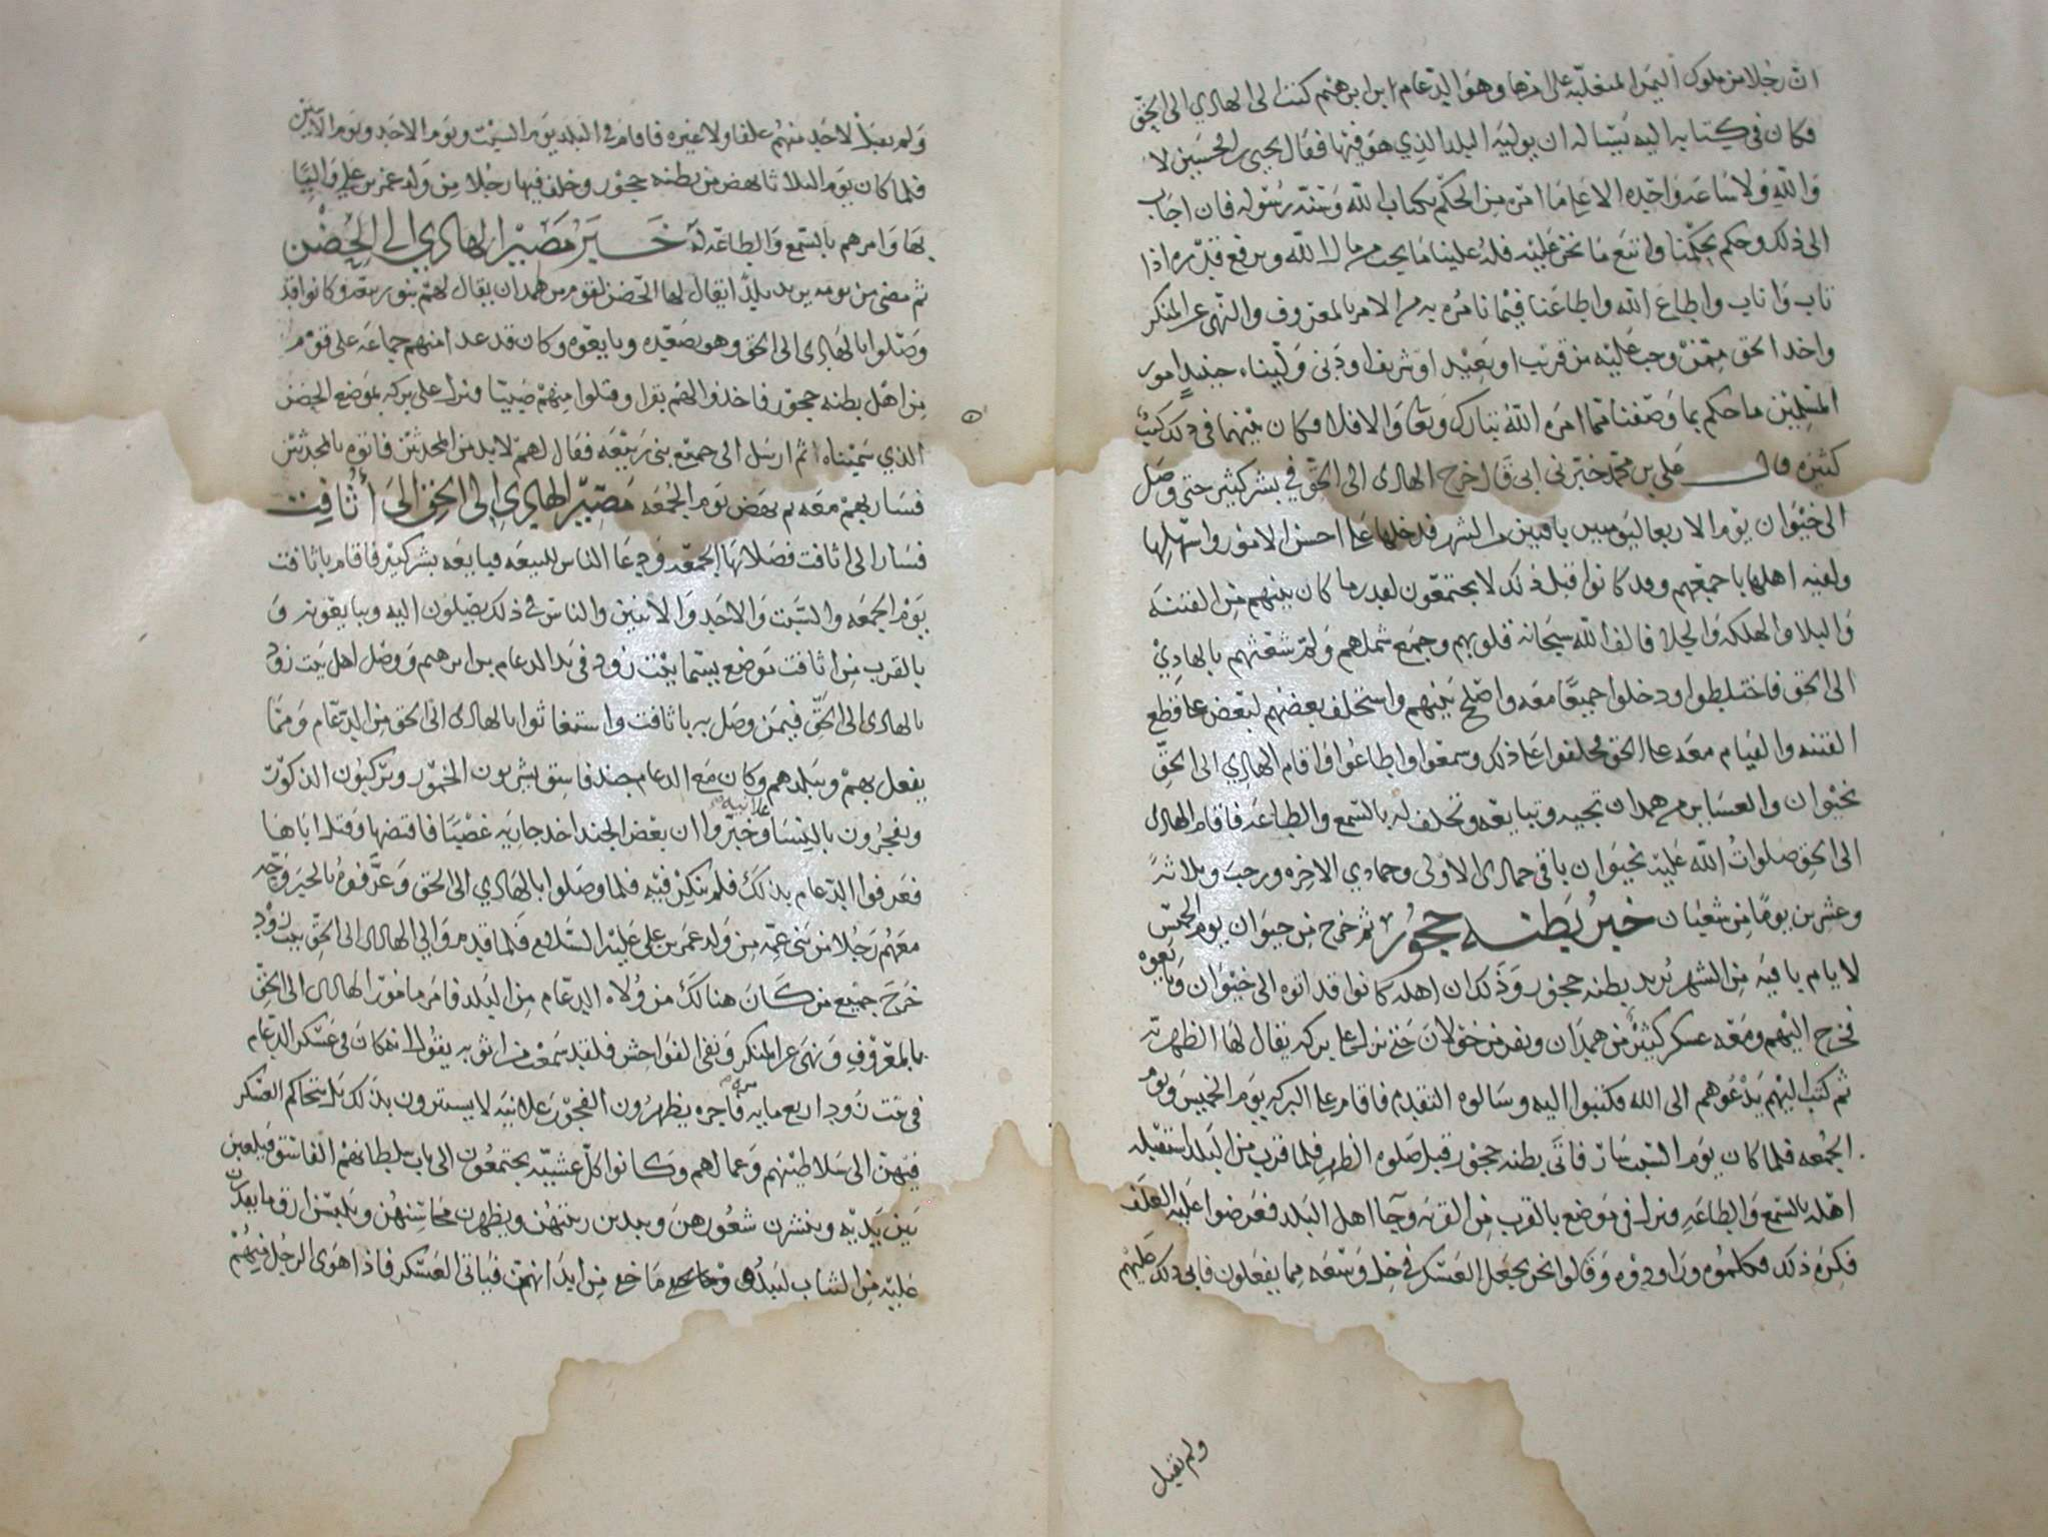 ان رجلا من ملوك اليمن المتغلبه على امرها وهو الدعام ابن ابرهيم كتب الى الهادي الى الحق
فكان في كتابه اليه يساله ان يوليه البلد الذي هو فيها فقال يحيى بن الحسين لا
والله ولا ساعه واحده الا على ما امره من الحكم بكتاب الله وسنه رسوله فان اجاب
الى ذلك وحكم بحكمنا واتبع ما نحن عليه فله علينا ما يجب من ما لا الله ويرفع قدره اذا
تاب واناب واطاع الله واطاعنا فيما نامره به من الامر بالمعروف والنهي عن المنكر
واخذ الحق ممن وجب عليه من قريب او بعيد او شريف او دني وليناه حينيذ امور
المسلمين ما حكم بما وصفنا مما امره الله تبارك وتعالى والا فلا فكان بينهما في ذلك كتب
كثيره قال علي بن محمد خبرني ابي قال خرج الهادي الى الحق في بشر كثير حتى وصل
الى خيوان يوم الاربعا ليومين باقيين من الشهر فدخلها على احسن الامور واسهلها
ولقيه اهلها باجمعهم وقد كانوا قبل ذلك لا يجتمعون لقدر ما كان بينهم من الفتنه
والبلا والهلكه والجلا فالف الله سبحانه قلوبهم وجمع شملهم ولم شعثهم بالهادي
الى الحق فاختلطوا ودخلوا جميعا معه واصلح بينهم واستحلف بعضهم لبعض على قطع
الفتنه والقيام معه على الحق فحلفوا على ذلك وسمعوا واطاعوا واقام الهادي الى الحق
بخيوان والعساير من همدان تجيه وتبايعه وتحلف له بالسمع والطاعه فاقام الهادي
الى الحق صلوات الله عليه بخيوان باقي جمادى الاولى وجمادي الاخره ورجب وثلاثه
وعشرين يوما من شعبان خبر بطنه حجور ثم خرج من خيوان يوم الخميس
لايام باقيه من الشهر يريد بطنه حجور وذلك ان اهله كانوا قد اتوه الى خيوان وبايعوه
فخرج اليهم ومعه عسكر كثير من همدان ونفر من خولان حتى نزل على بركه يقال لها الظهريه
ثم كتب اليهم يدعوهم الى الله فكتبوا اليه وسالوه التقدم فاقام على البركه يوم الخميس ويوم
الجمعه فلما كان يوم السبت سار فاتى بطنه حجور قبل صلوه الظهر فلما قرب من البلد استقبله
اهله بالسمع والطاعه فنزل في موضع بالقرب من القريه وجا اهل البلد فعرضوا عليه العلف
فكره ذلك فكلموه وراودوه وقالوا نحن نجعل العسكر في حل وسعه مما يفعلون فابى ذلك عليهم
ولم يقبل
ولم يقبل لاحد منهم علفا ولا غيره فاقام في البلد يوم السبت ويوم الاحد ويوم الاثنين
فلما كان يوم الثلاثا نهض من بطنه حجور وخلف فيها رجلا من ولد عمر بن علي واليا
بها وامرهم بالسمع والطاعه له خبر مصير الهادي الى الحضن
ثم مضى من يومه يريد بلدا يقال لها الحضن لقوم من همدان يقال لهم بنو ربيعه وكانوا قد
وصلوا بالهادي الى الحق وهو بصعده وبايعوه وكان قد عدا منهم جماعه على قوم
من اهل بطنه حجور فاخذوا لهم بقرا وقتلوا منهم صبيا فنزل على بركه بموضع الحضن
الذي سميناه ثم ارسل الى جميع بني ربيعه فقال لهم لا بد من المحدثين فاتوه بالمحدثين
فسار بهم معه ثم نهض يوم الجمعه مصير الهادي الى الحق الى أثافت
فسار الى اثافت فصلا بها الجمعه ودعا الناس للبيعه فبايعه بشر كثير فاقام باثافت
يوم الجمعه والسبت والاحد والاثنين والناس في ذلك يصلون اليه ويبايعونه و
بالقرب من اثافت موضع يسما بيت زود في يد الدعام بن ابرهيم ووصل اهل بيت زود
بالهادي الى الحق فيمن وصل به باثافت واستغاثوا بالهادي الى الحق من الدعام ومما
يفعل بهم وببلدهم وكان مع الدعام جند فاسق يشربون الخمور ويركبون الذكور
ويفجرون بالنسا علانيه وخبروا ان بعض الجند اخذ جاريه غصبا فاقتضها وقتل اباها
فعرفوا الدعام بذلك فلم ينكر فيه فلما وصلوا بالهادي الى الحق وعرفوه بالخبر وجه
معهم رجلا من بني عمه من ولد عمر بن علي عليه السلام فلما قدم والي الهادي الى الحق بيت زود
خرج جميع من كان هنالك من ولاه الدعام من البلد فامر مامور الهادي الى الحق
بالمعروف ونهى عن المنكر ونفى الفواحش فلقد سمعت من اثق به يقول انه كان في عسكر الدعام
في بيت زود اربع مايه مره فاجره يظهرون الفجور علانيه لا يستترون بذلك بل يتحاكم العسكر
فيهن الى سلاطينهم وعمالهم وكانوا كل عشيه يجتمعون الى باب سلطانهم الفاسق فيلعبن
بين يديه وينشرن شعورهن ويبدين زينتهن ويظهرن محاسنهن ويلبسن ارق ما يقدرن
عليه من الثياب ليبدو ما خفي من ابدانهن فياتي العسكر فاذا هوى الرجل منهم